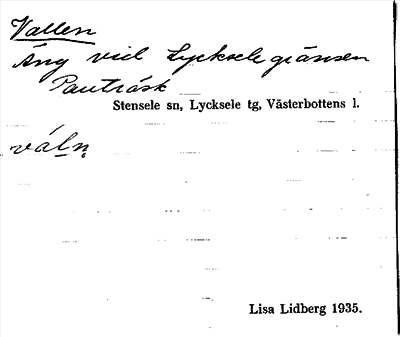 Vallen
Äng vid Lycksele gränsen
Pauträsk
Stensele sn, Lycksele tg, Västerbottens l.
váln̥
Lisa Lidberg 1935.